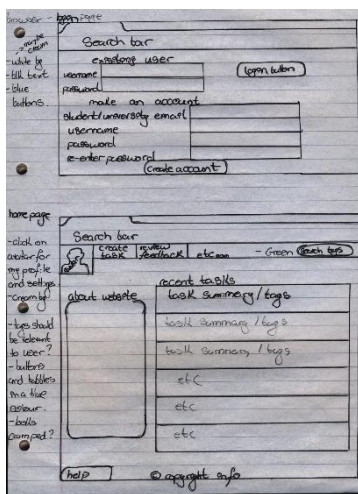 browser - logon page
-> maybe cream
- white bg
- blk text
- blue buttons.
Search bar
existing user
username
password
logon button
make an account
student/university email
username
password
re-enter password
create account
home page
- click on
avatar for
my profile
and settings
- cream bg
- tags should
be relevant
to user?
- buttons
and tables
in a blue
colour.
cramped?
Search bar
avatar
create task
review feedback
etc
- Green
search tags
about website
recent tasks
task summary / tags
task summary / tags
task summary / tags
etc
etc
etc
help
© copyright info